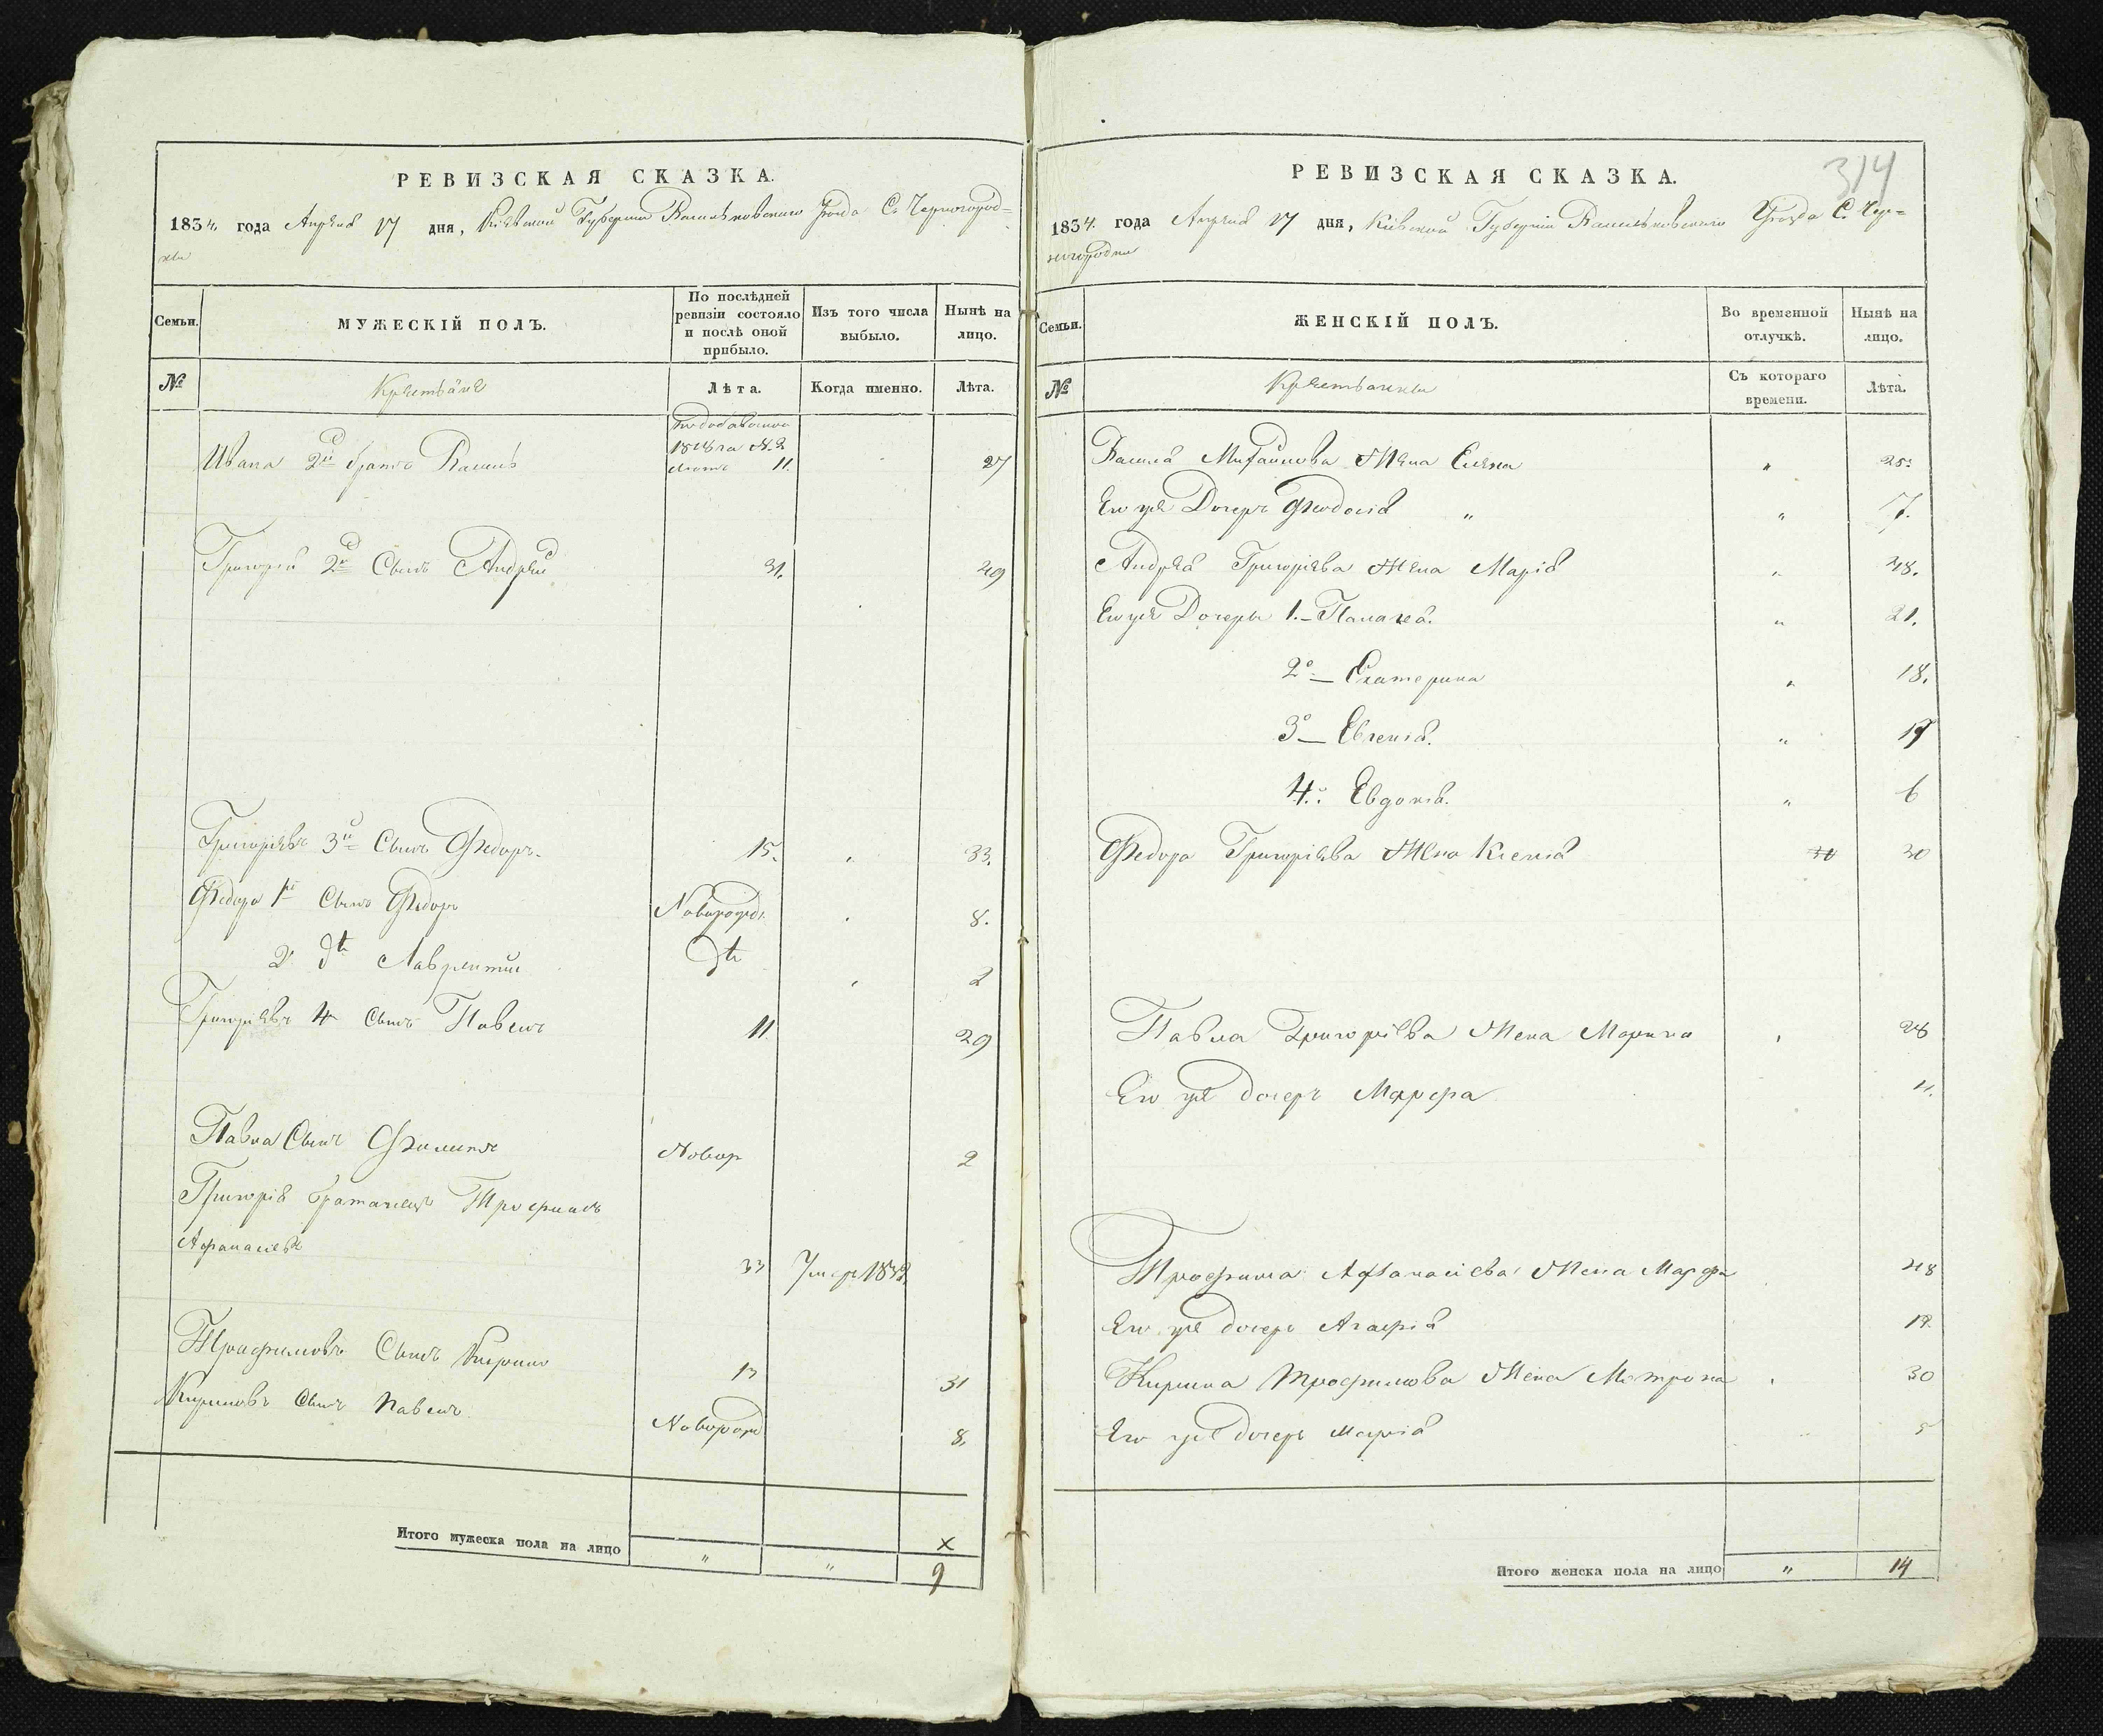 РЕВИЗСКАЯ СКАЗКА.
1834. года Апреля 17 дня, Кіевской Губерніи Васильковскаго Уезда С. Черногород=
ки
Семьи. МУЖЕСКІЙ ПОЛЪ. По послѣдней ревизіи состояло и послѣ оной прибыло. Изъ того числа выбыло. Нынѣ на лицо.
№ Крестьяне Лѣта. Когда именно. Лѣта.
Ивана 2й братъ Василь 11. 27
Григорія 2й Сынъ Андрей 31. 49
Григоріевъ 3й Сынъ Федоръ. 15. 33.
Федора 1й Сынъ Федоръ Новорожд. 8.
2 дт Лаврентій дт 2
Григоріевъ 4 Сынъ Павелъ 11 29
Павла Сынъ Филипъ Новор 2
Григорія братанецъ Трофимъ
Афанасіевъ 33 Умер 1832
Трофимовъ Сынъ Кирило 13 31
Кириловъ Сынъ Павелъ Новорож 8.
Итого мужеска пола на лицо " " 9
314
РЕВИЗСКАЯ СКАЗКА.
1834. года Апреля 17 дня, Кіевской Губерніи Васильковскаго Уезда С. Чер=
ногородки
Семьи. ЖЕНСКІЙ ПОЛЪ. Во временной отлучкѣ. Нынѣ на лицо.
№ Крестьянки Съ котораго времени. Лѣта.
Василя Михайлова Жена Елена " 25.
Его же Дочерь Феодосія " " 7.
Андрея Григоріева Жена Марія " 48.
Его же Дочеры 1. Палагея. " 21.
2е Екатерина " 18.
3е Евгенія. "
4. Евдокія. " 6
Федора Григоріева Жена Ксенія 30 30
Павла Григоріева Жена Марина 28
Его же дочерь Марфа
Трофима Афанасіева Жена Марфа 48
Его же дочерь Агафія
Кирила Трофимова Жена Мотрона 30
Его же дочерь Марія 5
Итого женска пола на лицо " 14